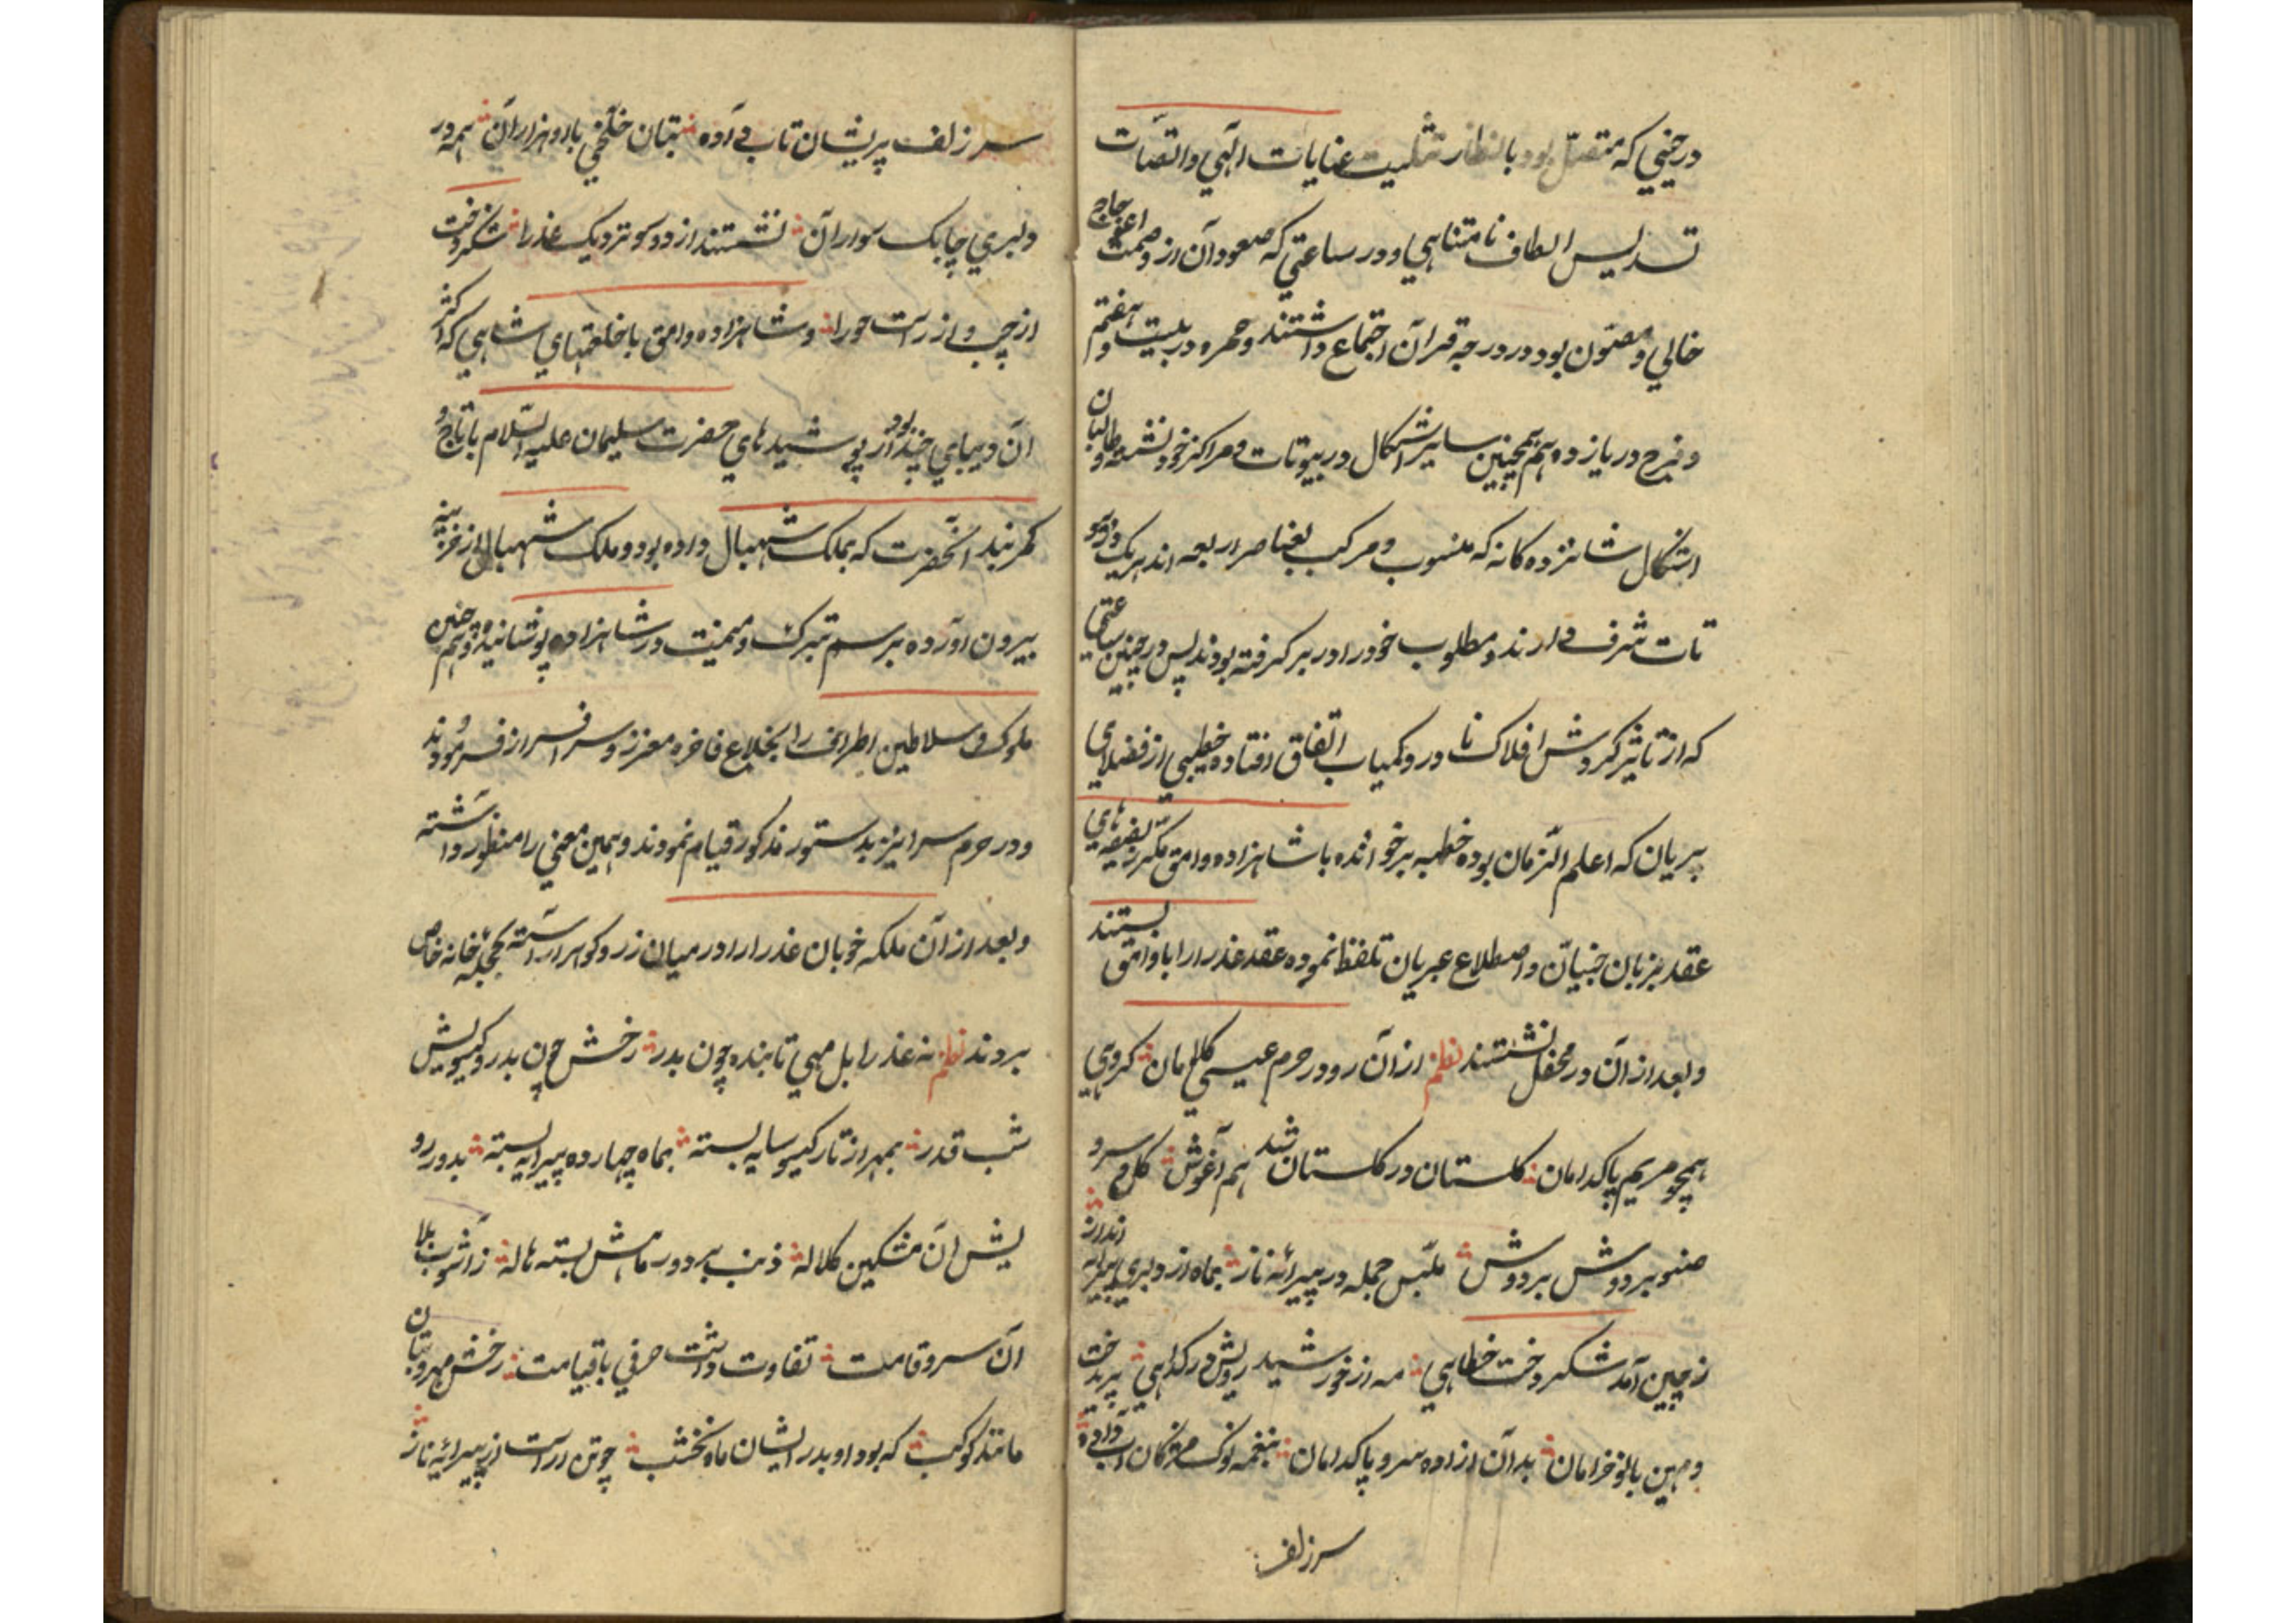 درحینی که متصل بود بانظار تثلیث عنایات الهی واتصالات
تسدیس الطاف نامتناهی ودر ساعتی که صعود آن از وصمت اعوجاج
خالی ومصئون بود در درجه قران اجتماع داشتند وحمره در بیست وهفتم
وفرح در یازدهم همچنین سایر اشکال در بیوتات ومراکز خود نشسته وطالبان
اشکال شانزده کانه که منسوب ومرکب بعناصر اربعه اند هریک
شرف دارند ومطلوب خود را در بر کرفته بودند پس در چنین ساعتی
که از تاثیر کردش افلاک نادر وکمیاب اتفاق افتاده خطیبی از فضلای
پریان که اعلم الزمان بوده خطبه برخوانده باشاهزاده وامق مکرر
عقد بزبان جنیان واصطلاح عبریان تلفظ نموده عقد عذرا را باوامق بستند
وبعد از آن در محفل نشستند نظم از آن رو در حرم عیسی کلامان کروهی
همچو مریم پاکدامان کلستان در کلستان شد هم آغوش کل و سرو
صنوبر دوش بر دوش ملبس جمله در پیرائه ناز بماه از دلبری پیرایه انداز
ز چین آمد شکر دخت خطاهی مه از خورشید رویش در کداهی پریدخت
ومهین بانو خرامان بد آن ازاده سرو پاکدامان بنغمه نوک مژکان آب داده
سرزلف
سر زلف پریشان تاب داده بتان خلخی با او هزاران همه در
دلبری چابک سواران نشستند از دو سو نزدیک عذرا شکر دخت
از چپ و از راست حورا وشاهزاده وامق باخلعتهای شاهی که اکثر
آن دیبای چند از پوشیدهای حضرت سلیمان علیه السلام بود باتاج و
کمربند آنحضرت که بملک شهبال داده بود وملک شهبال از خزینه
بیرون آورده برسم تبرک ومیمنت در شاهزاده پوشانیده وهم چنین
ملوک وسلاطین اطراف را بخلاع فاخره معزز وسرافراز فرمودند
ودر حرم سرا نیز بدستور مذکور قیام نمودند وهمین معنی را منظور داشته
وبعد از آن ملکه خوبان عذرا را در میان زر وکوهر آراسته بحجله خانه خاص
بردند نظم نه عذرا بل مهی تابنده چون بدر رخش چون بدر وکیسویش
شب قدر بمهر از تار کیسو سایه بسته بماه چهارده پیرایه بسته بدور رو
یش آن مشکین کلاله ذنب بر دور ماهش بسته هاله ز آشوب بلا
آن سرو قامت تفاوت داشت حرفی باقیامت رخش مهر وبتان
مانند کوکب که بود او بدر ایشان ماه نخشب چو تن آراست از پیرائه ناز